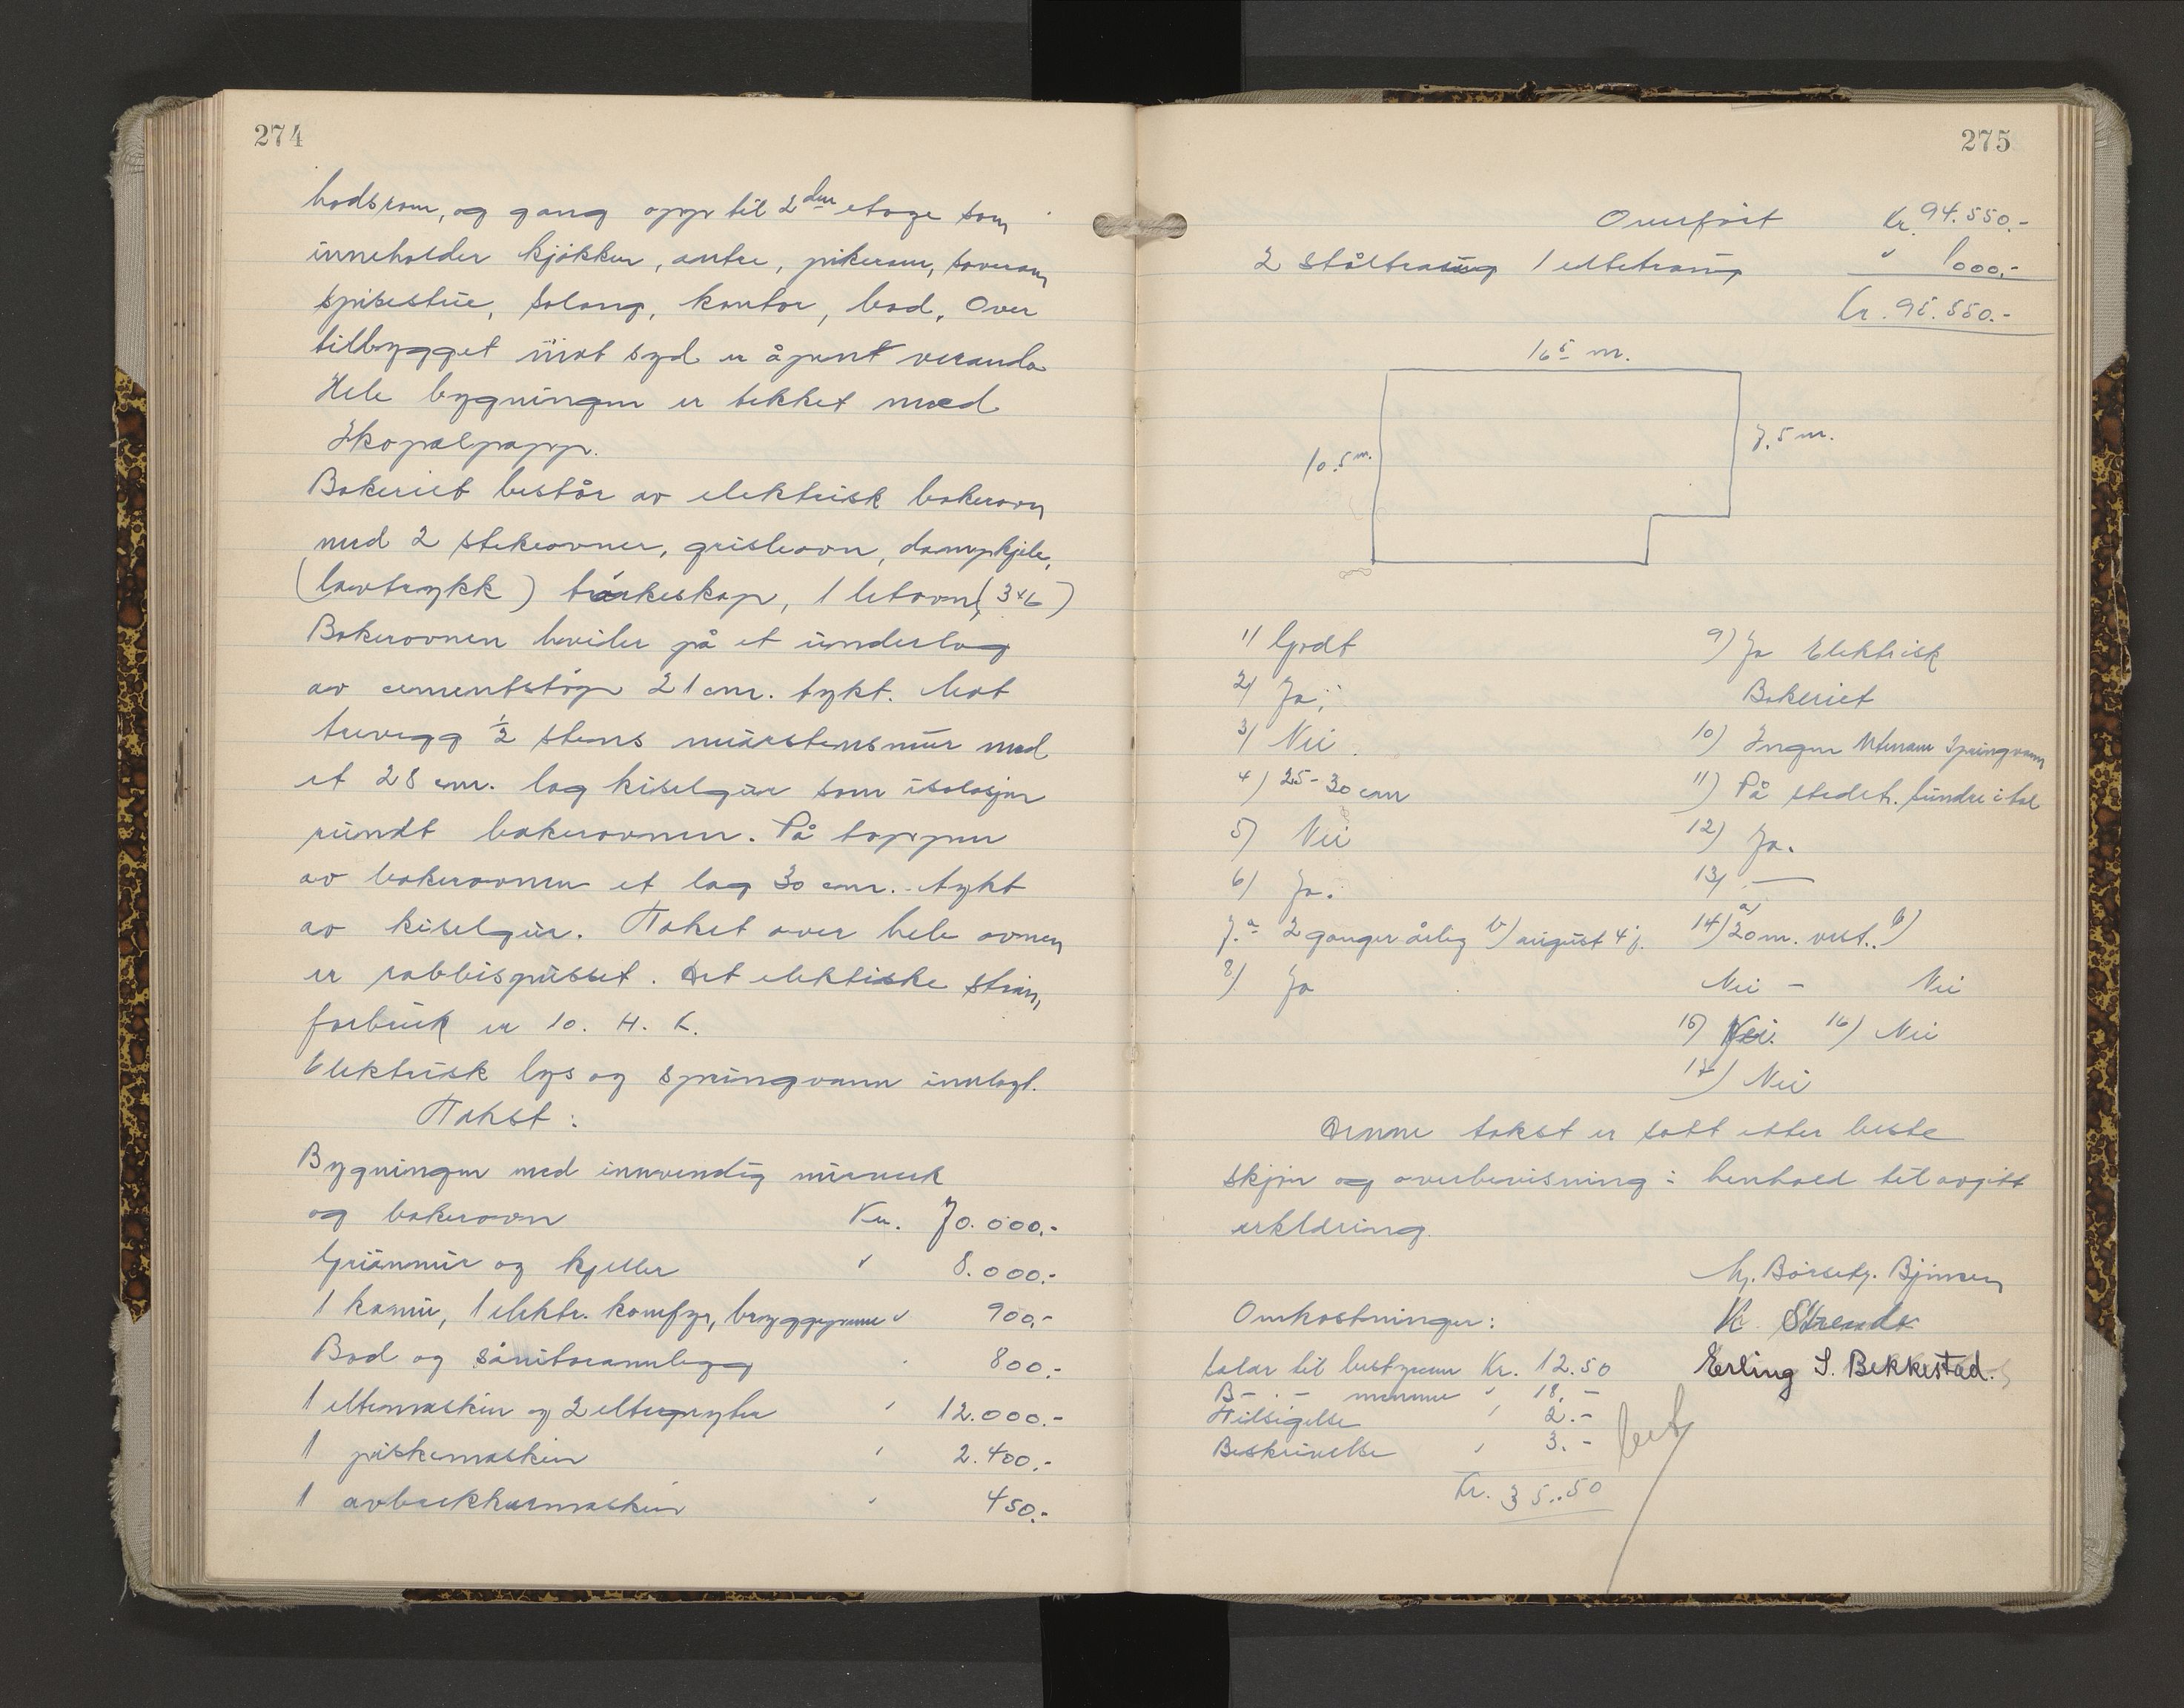 274
badsrom, og gang opp til 2den etage som
inneholder kjøkken, antre, pikerom, soverom
spisestue, salong, kontor, bod. Over
tilbygget imot syd er åpent veranda
Hele bygningen er tekket med
Ikopalpapp.
Bakeriet består av elektrisk bakerovn
med 2 stekeovner, grisleovn, dampkjele,
(lavtrykk) tørkeskap, 1 letovn (3x6)
Bakerovnen hviler på et underlag
av cementstøp 21 cm. tykt. Mot
trevegg ½ stens murstensmur med
et 28 cm. lag kiselgur som isolasjon
rundt bakerovnen. På toppen
av bakerovnen et lag 30 cm. tykt
av kiselgur. Taket over hele ovnen
er rabbispusset. Det elektriske strøm
forbruk er 10. H. K.
Elektrisk lys og springvann innlagt.
Takst:
Bygningen med innvendig murverk
og bakerovn Kr. 70.000.-
Grunnmur og kjeller " 8.000.-
1 kamin, 1 elektr. komfyr, bryggepanne " 900.-
Bad og sanitæranlegg " 800.-
1 eltemaskin og 2 eltegryter " 12.000.-
1 piskemaskin " 2.400.-
1 avbrekkermaskin " 450.-
275
Overført Kr. 94.550.-
2 ståltraug 1 eltetraug " 1000.-
Kr. 95.550.-
16⁵ m.
7.5 m.
10.5 m.
1) Godt
2) Ja.
3) Nei.
4) 25-30 cm
5) Nei
6) Ja.
7.a 2 ganger årlig b) august 47.
8) Ja
9) Ja Elektrisk
Bakeriet
10) Ingen Utenom Springvann
11) På stedet. Mindre i tal
12) Ja.
13) —
14) a) 20 m. vest. b)
Nei - Nei
15) Nei. 16) Nei
17) Nei
Denne takst er satt etter beste
skjøn og overbevisning i henhold til avgitt
erklæring.
Omkostninger:
Salær til bestyreren Kr. 12.50
B- . - mennene " 18.-
Tilsigelse " 2.-
Beskrivelse " 3.-
Kr. 35.50
bet
K. Strende
Erling S. Bekkestad.